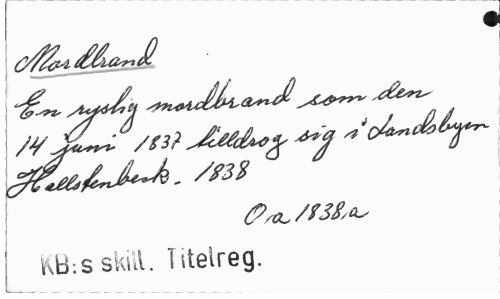 Mordbrand
En ryslig mordbrand som den
14 juni 1837 tilldrog sig i Landsbyen
Hallstenbeck. 1838
O a 1838 a
KB:s skill. Titelreg.